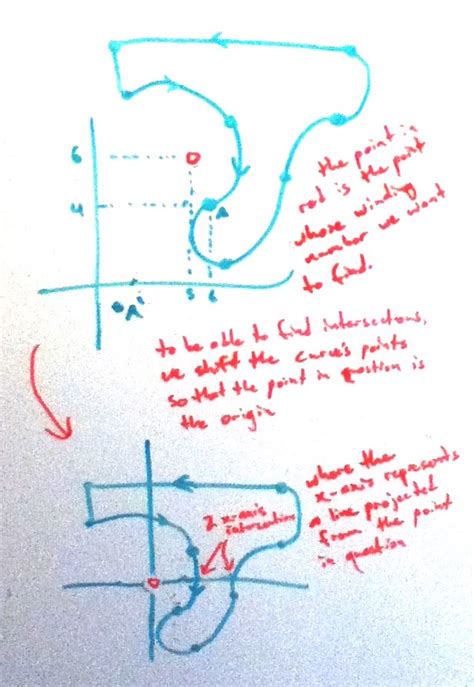 the point in
red is the point
whose winding
number we want
to find.
6
4
A
5
6
A'
to be able to find intersections,
we shift the curve's points
so that the point in question is
the origin
where the
x-axis represents
a line projected
from the point
in question
2 x-axis
intersections